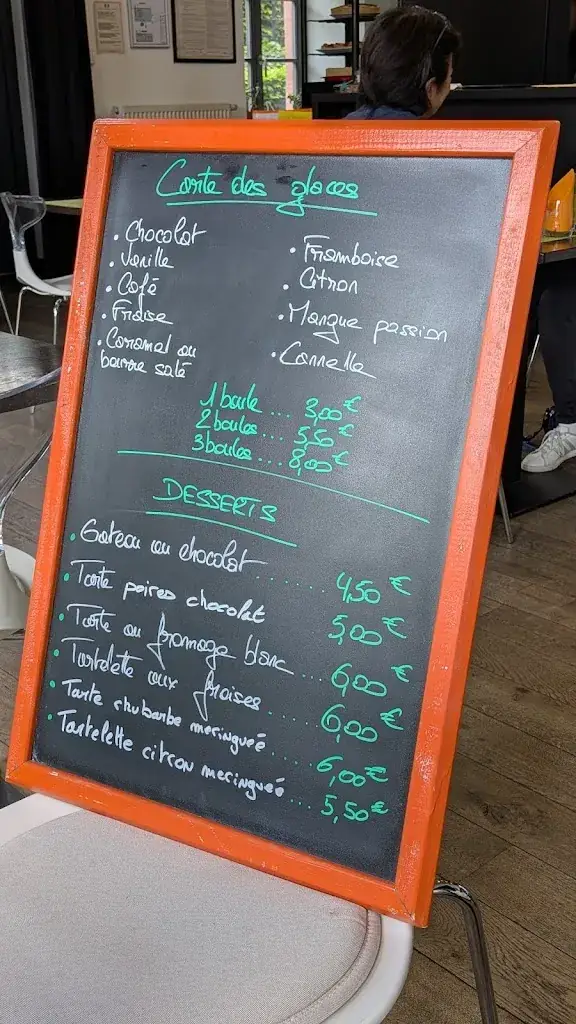 Carte des glaces
• Chocolat
• Vanille
• Café
• Fraise
• Caramel au
beurre salé
• Framboise
• Citron
• Mangue passion
• Cannelle
1 boule ... 3,00 €
2 boules ... 5,50 €
3 boules ... 8,00 €
DESSERTS
• Gateau au chocolat ...... 4,50 €
• Tarte poires chocolat 5,00 €
• Tarte au fromage blanc ... 6,00 €
• Tartelette aux fraises ..... 6,00 €
• Tarte rhubarbe meringuée .... 6,00 €
• Tartelette citron meringuée ... 5,50 €